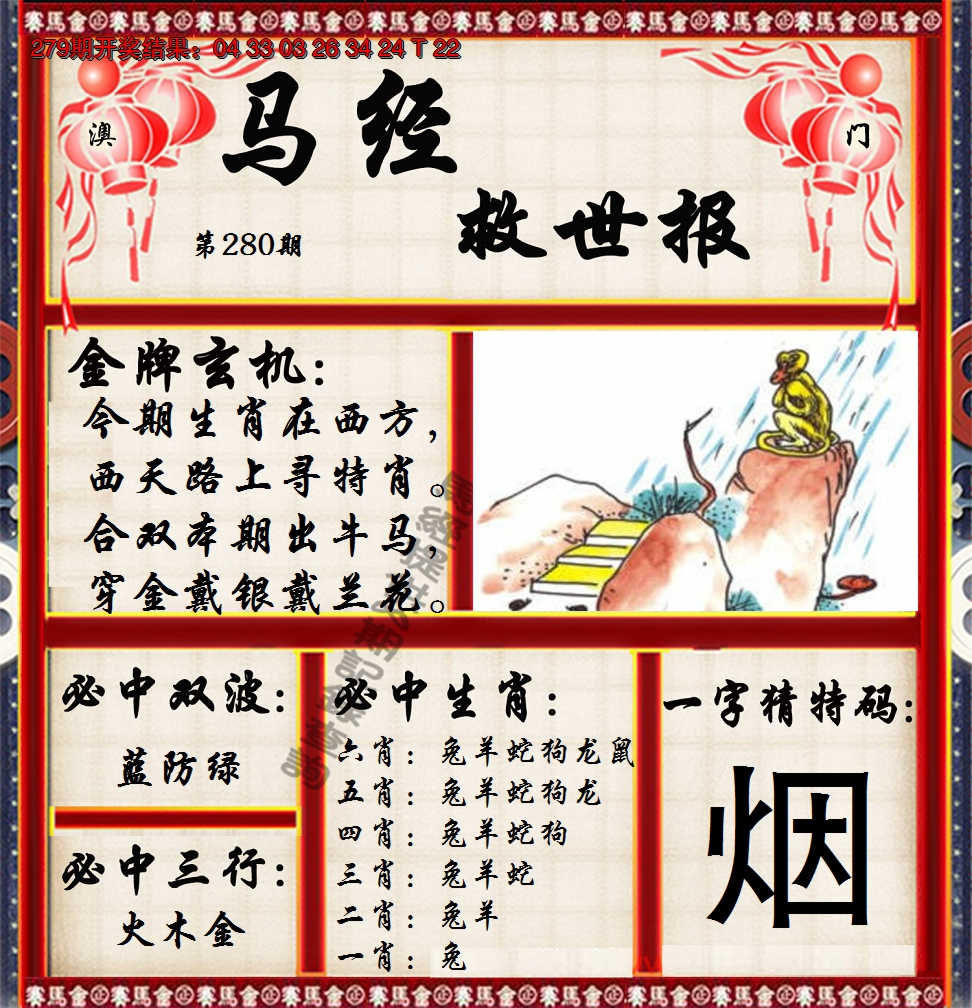 279期开奖结果：04 33 03 26 34 24 T 22
澳
门
马经
救世报
第280期
金牌玄机：
今期生肖在西方，
西天路上寻特肖。
合双本期出牛马，
穿金戴银戴兰花。
必中双波：
蓝防绿
必中三行：
火木金
必中生肖：
六肖：兔羊蛇狗龙鼠
五肖：兔羊蛇狗龙
四肖：兔羊蛇狗
三肖：兔羊蛇
二肖：兔羊
一肖：兔
一字猜特码：
烟